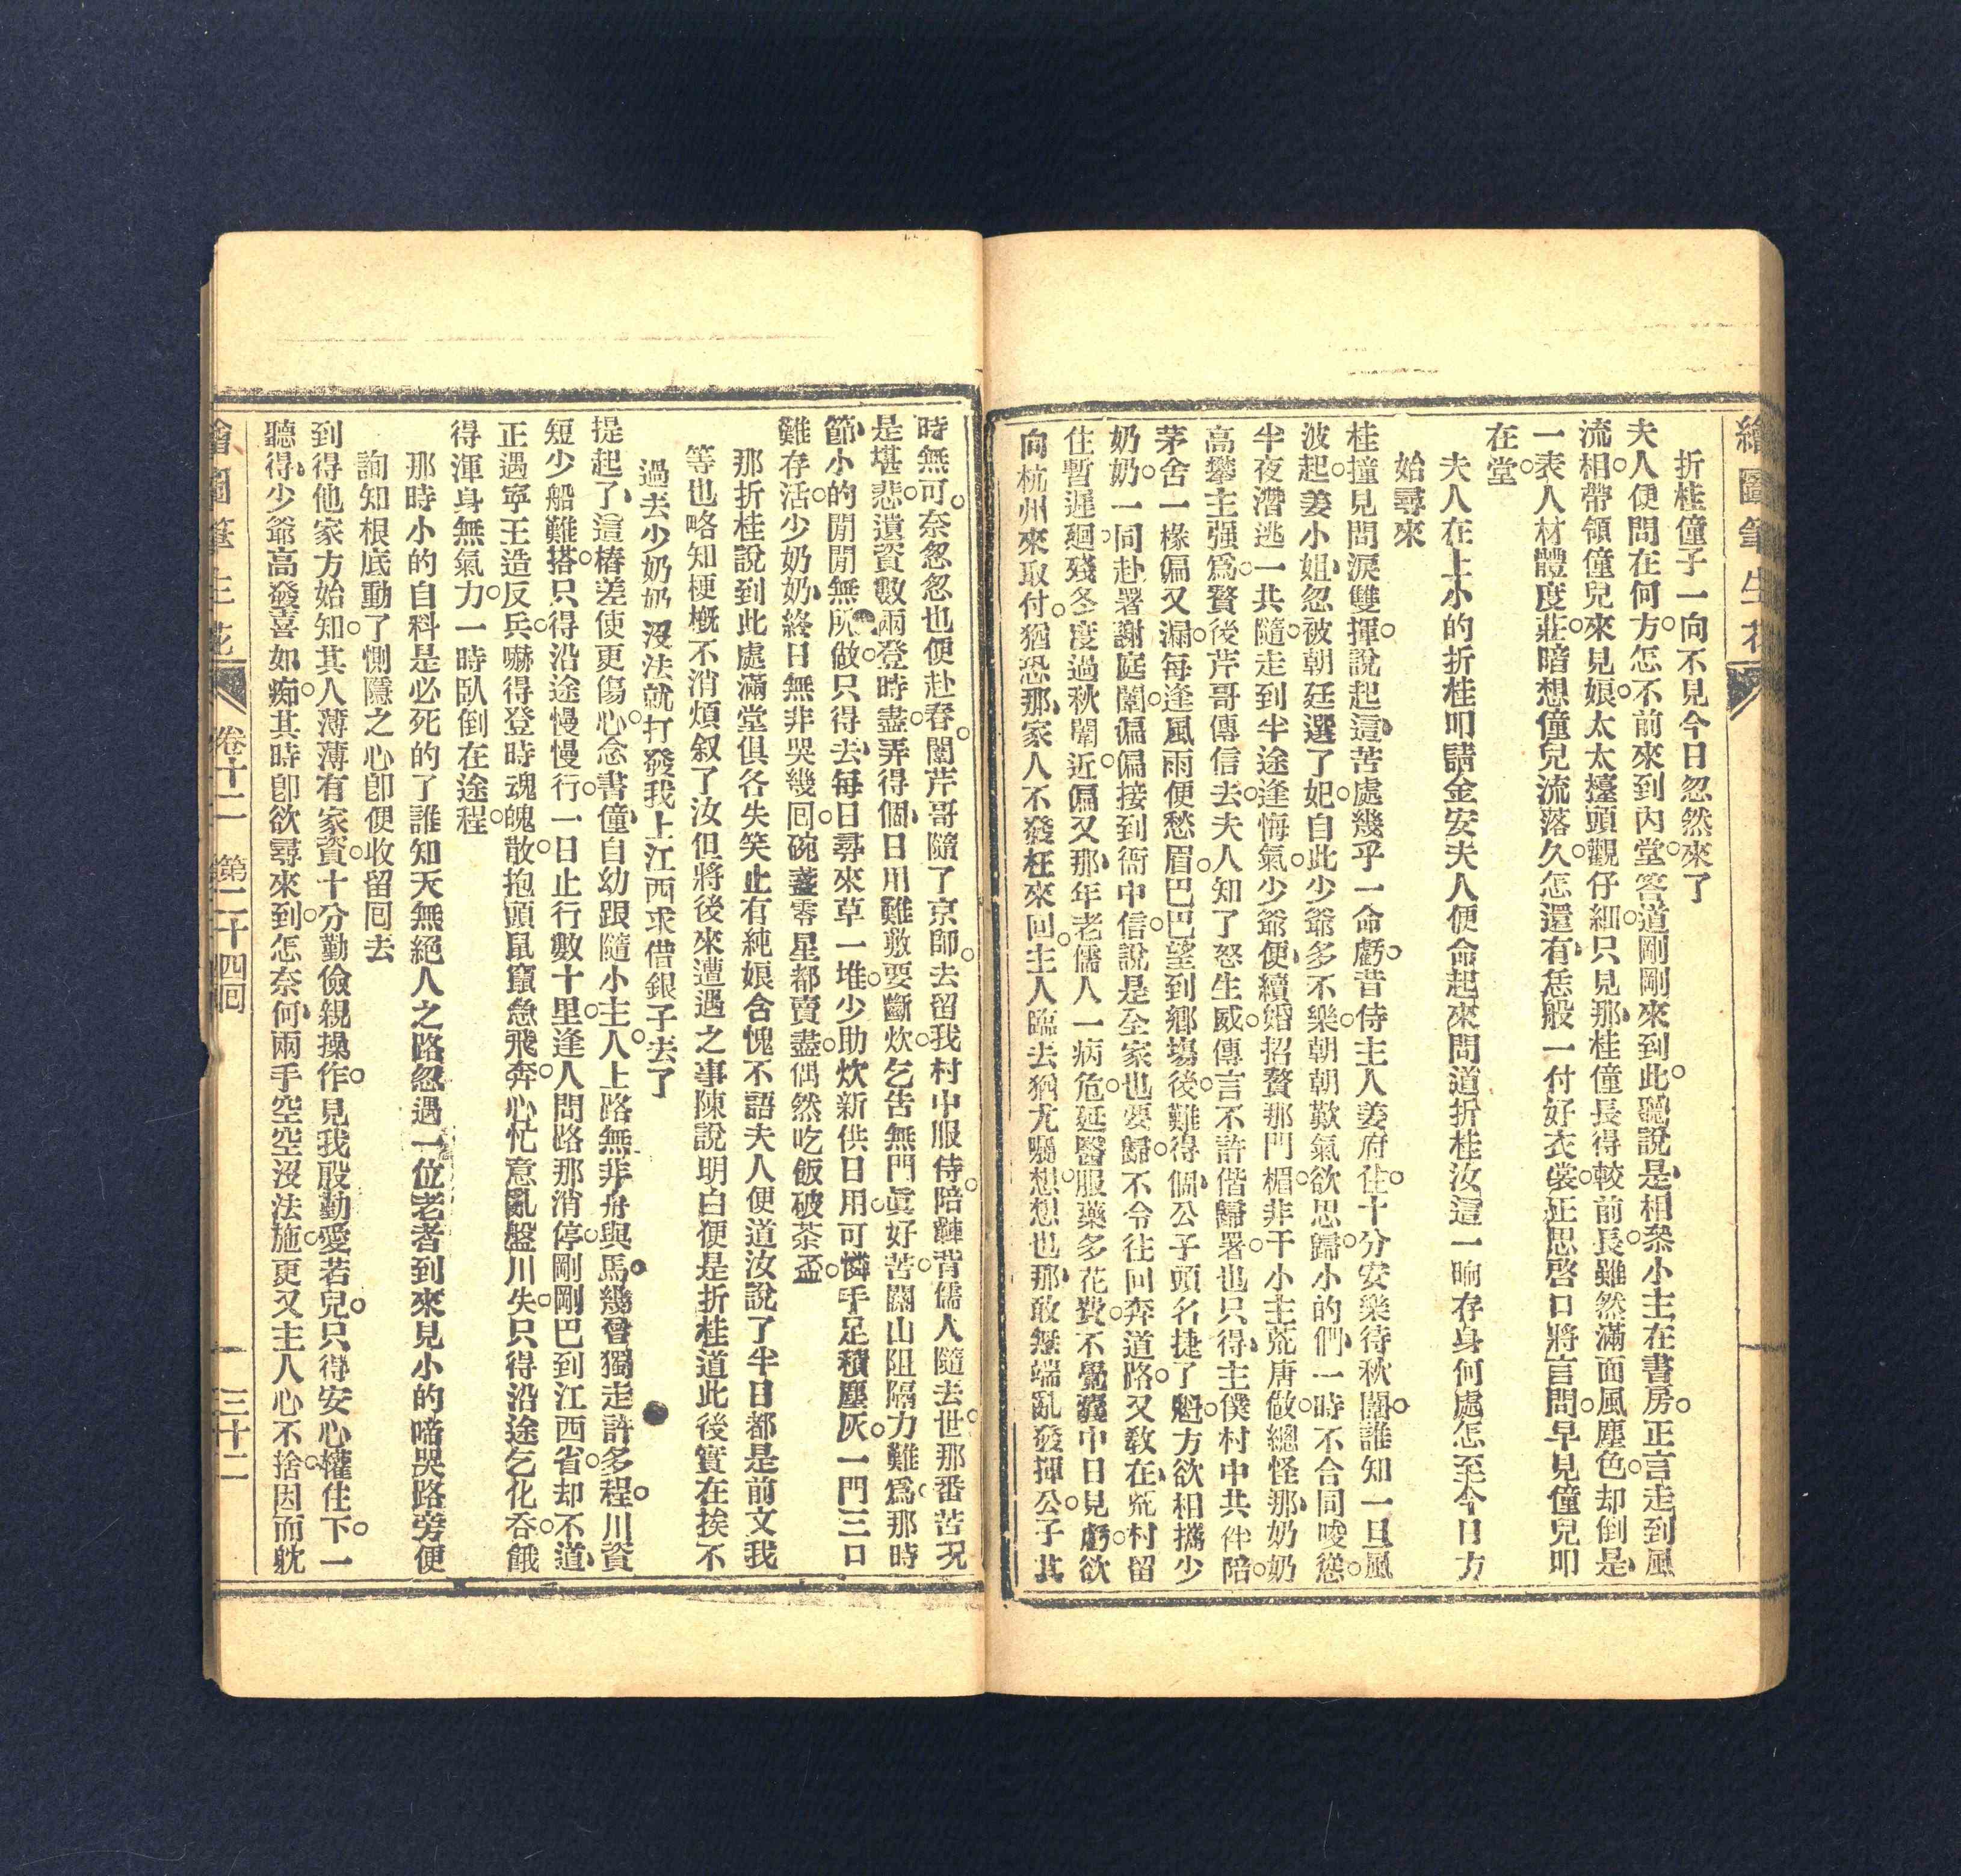 繪圖筆生花
折桂僮子一向不見今日忽然來了
夫人便問在何方。怎不前來到內堂。答道剛剛來到此。聽說是、相叅小主在書房。正言走到風
流相。帶領僮兒來見娘。太太擡頭觀仔細。只見那、桂僮長得較前長。雖然滿面風塵色。却倒是、
一表人材體度莊。暗想僮兒流落久。怎還有、恁般一付好衣裳。正思啓口將言問。早見僮兒叩
在堂。
夫人在上小的折桂叩請金安夫人便命起來問道折桂汝這一晌存身何處怎至今日方
始尋來
桂撞見問淚雙揮。說起這、苦處幾乎一命虧。昔侍主人姜府住。十分安樂待秋闈。誰知一旦風
波起。姜小姐、忽被朝廷選了妃。自此少爺多不樂。朝朝歎氣欲思歸。小的們、一時不合同唆慫。
半夜潛逃一共隨。走到半途逢悔氣。少爺便、續婚招贅那門楣。非干小主荒唐做。總怪那、奶奶
高攀主强爲。贅後芹哥傳信去。夫人知了怒生威。傳言不許偕歸署。也只得、主僕村中共伴陪。
茅舍一椽偏又漏。每逢風雨便愁眉。巴巴望到鄉塲後。難得個、公子頭名捷了魁。方欲相攜少
奶奶。一同赴署謝庭闈。偏偏接到衙中信。說是全家也要歸。不令往回奔道路。又教在、荒村留
住暫遲廻。殘冬度過秋闈近。偏又那、年老儒人一病危。延醫服藥多花費。不覺囊中日見虧。欲
向杭州來取付。猶恐那、家人不發枉來回。主人臨去猶尤囑。想想也、那敢無端亂發揮。公子其
時無可奈。忽忽也便赴春闈。芹哥隨了京師去。留我村中服侍陪。韡背儒人隨去世。那番苦况
是堪悲。遺資數兩登時盡。弄得個、日用難敷要斷炊。乞告無門眞好苦。關山阻隔力難爲。那時
節、小的閒閒無所做。只得去、每日尋來草一堆。少助炊新供日用。可憐手足積塵灰。一門三口
難存活。少奶奶、終日無非哭幾囘。碗盞零星都賣盡。偶然吃飯破茶盃。
那折桂說到此處滿堂俱各失笑止有純娘含愧不語夫人便道汝說了半日都是前文我
等也略知梗槪不消煩叙了汝但將後來遭遇之事陳說明白便是折桂道此後實在挨不
過去少奶奶沒法就打發我上江西求借銀子去了
提起了、這樁差使更傷心。念書僮、自幼跟隨小主人。上路無非舟與馬。幾曾獨走許多程。川資
短少船難搭。只得沿途慢慢行。一日止行數十里。逢人問路那消停。剛剛巴到江西省。却不道、
正遇寧王造反兵。嚇得登時魂魄散。抱頭鼠竄急飛奔。心忙意亂盤川失。只得沿途乞化吞。餓
得渾身無氣力。一時臥倒在途程。
那時小的自料是必死的了誰知天無絕人之路忽遇一位老者到來見小的啼哭路旁便
詢知根底動了惻隱之心卽便收留囘去
到得他家方始知。其人薄薄有家資。十分勤儉親操作。見我殷勤愛若兒。只得安心權住下。一
聽得、少爺高發喜如痴。其時卽欲尋來到。怎奈何、兩手空空沒法施。更又主人心不捨。因而躭
繪圖筆生花 卷十二 第二十四囘 三十二